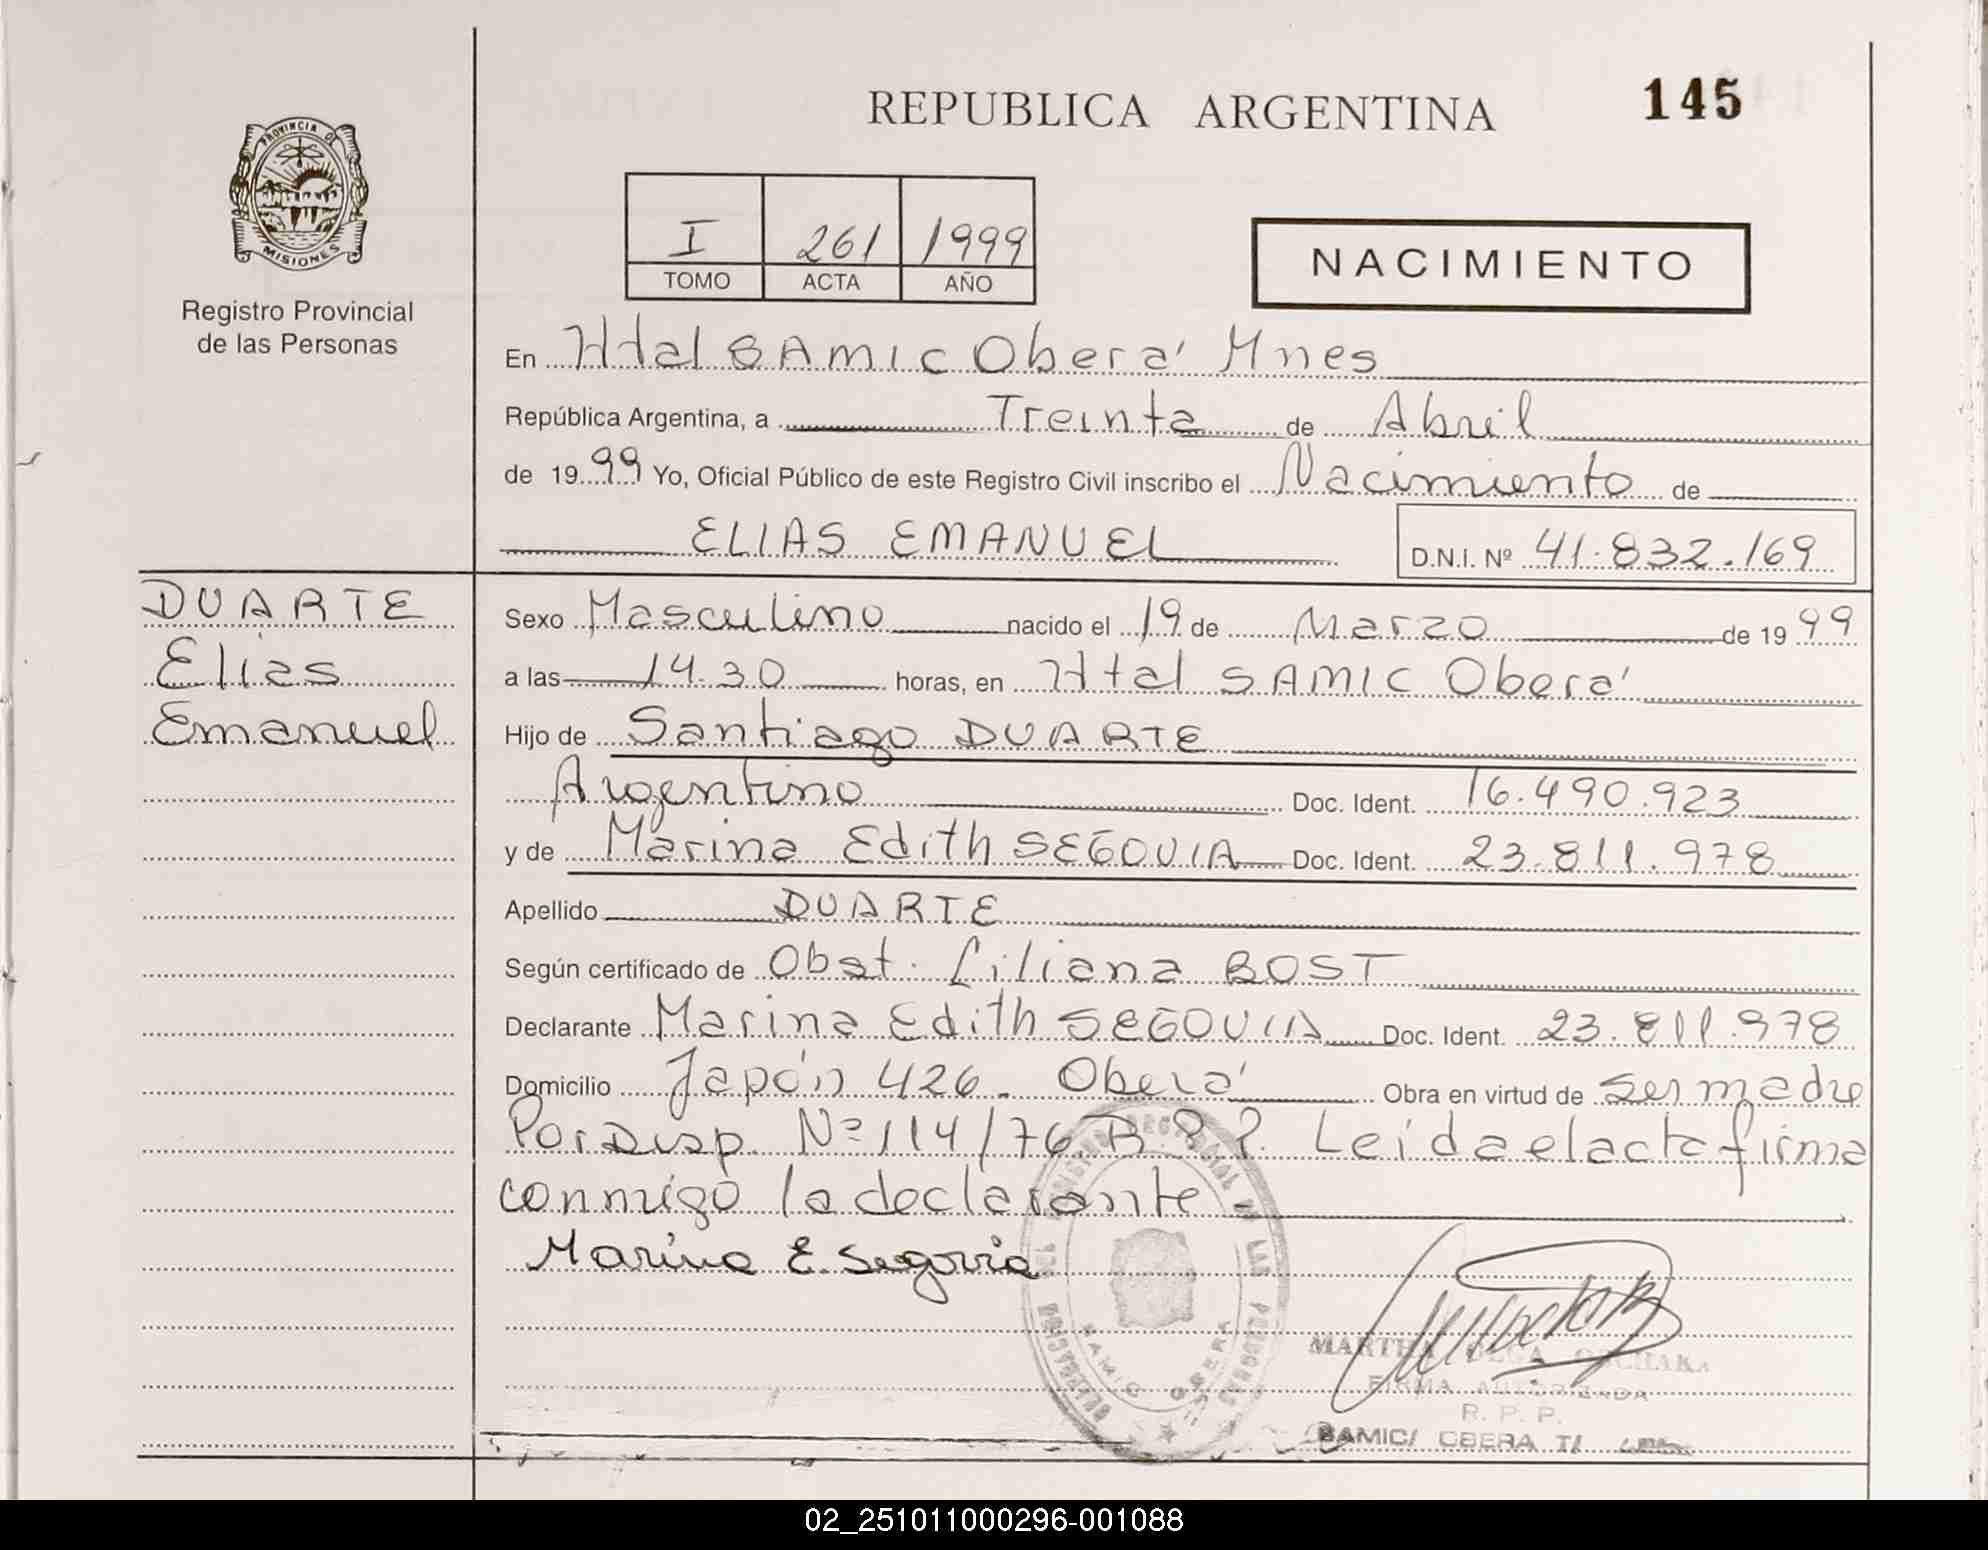 REPUBLICA ARGENTINA
145
PROVINCIA DE
MISIONES
Registro Provincial
de las Personas
I 261 1999
TOMO ACTA AÑO
NACIMIENTO
En Htal SAMIC Oberá Mnes
República Argentina, a Treinta de Abril
de 1999 Yo, Oficial Público de este Registro Civil inscribo el Nacimiento de
ELIAS EMANUEL D.N.I. Nº 41.832.169
DUARTE
Elias
Emanuel
Sexo Masculino nacido el 19 de Marzo de 1999
a las 14.30 horas, en Htal SAMIC Oberá
Hijo de Santiago DUARTE
Argentino Doc. Ident. 16.490.923
y de Marina Edith SEGOVIA Doc. Ident. 23.811.978
Apellido DUARTE
Según certificado de Obst. Liliana BOST
Declarante Marina Edith SEGOVIA Doc. Ident. 23.811.978
Domicilio Japón 426. Oberá Obra en virtud de ser madre
Por Disp. Nº 114/76 R.P.P. Leída el acta firma
conmigo la declarante
Marina E. Segovia
SAMIC OBERA
MARTHA OLGA
FIRMA AUTORIZADA
R. P. P.
SAMIC/ OBERA T/
02_251011000296-001088